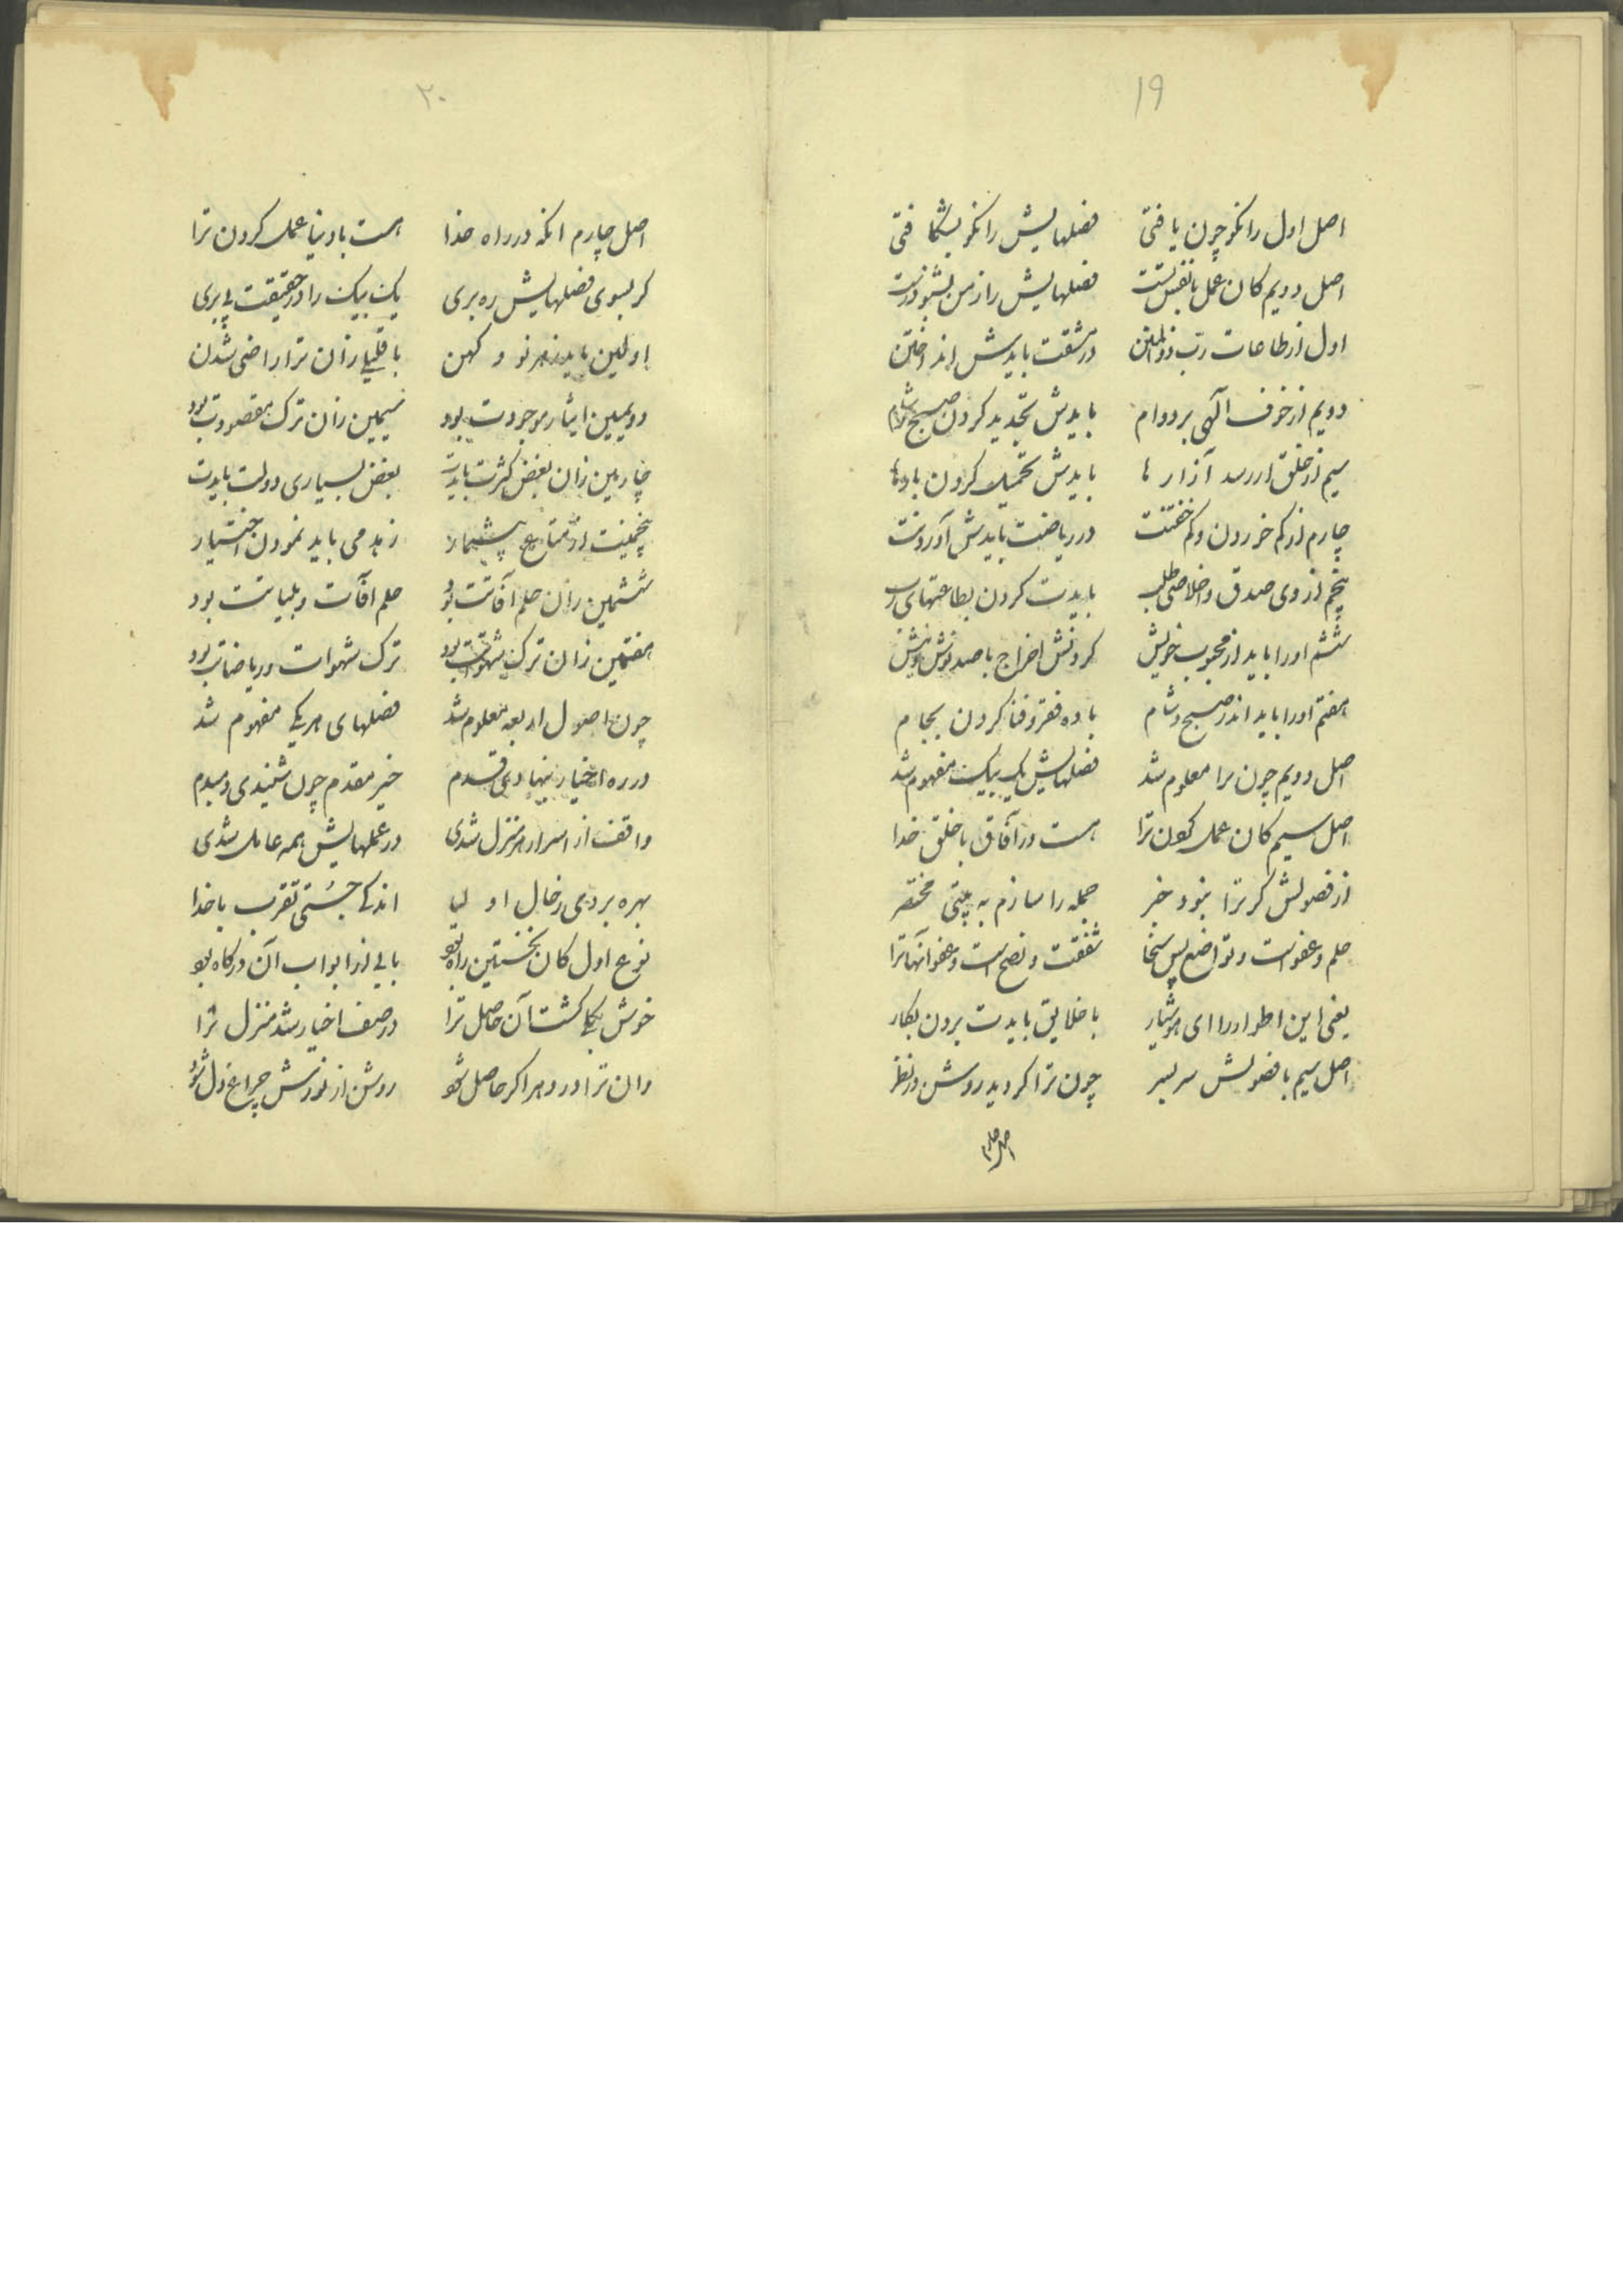 ۱۹
اصل اول را نکو چون یافتی فضلهایش را نکو بشکافتی
اصل دویم کان عمل با نفس تست فصلهایش را ز من بشنو درست
اول از طاعات رب ذوالمنن در مشقت بایدش انداختن
دویم از خوف الهی بر دوام بایدش تجدید کردن صبح و شام
سیم از خلق ار رسد آزار ها بایدش تحمیل کردن بارها
چارم از کم خوردن و کم خفتنت در ریاضت بایدش آوردنت
پنجم از روی صدق و اخلاص طلب بایدت کردن بطاعتهای رب
ششم اورا باید از محبوب خویش کردنش اخراج با صد نوش و نیش
هفتم اورا باید اندر صبح و شام باده فقر و فنا کردن بجام
اصل دویم چون مرا معلوم شد فصلهایش یک بیک مفهوم شد
اصل سیم کان عمل کون ترا هست در آفاق با خلق خدا
از فصولش کر ترا نبود خبر جمله را سازم به بیتی مختصر
حلم و عفواست و تواضع پس سخا شفقت و نصح است و عفو آنها ترا
یعنی این اطوار را ای هوشیار با خلایق بایدت بردن بکار
اصل سیم با فصولش سر بسر چون ترا کردید روشن در نظر
اصل چارم
۲۰
اصل چارم انکه در راه خدا هست با دنیا عمل کردن ترا
کر بسوی فصلهایش ره بری یک بیک را در حقیقت پی بری
اولین باید ز هر نو و کهن با قلیلی زان ترا راضی شدن
دویمین ایثار موجودت بود سیمین زان ترک مقصودت بود
چارمین زان بغض کثرت بایدت بغض بسیاری دولت بایدت
پنجمینت از متاع بیشمار زهد می باید نمودن اختیار
ششمین زان حلم آفاتت بود حلم آفات و بلیاتت بود
هفتمین زان ترک شهوتت بود ترک شهوات و ریاضاتت بود
چون اصول اربعه معلوم شد فصلهای هر یکی مفهوم شد
در ره اخیار بنهادی قدم خیر مقدم چون شنیدی دمبدم
واقف از اسرار هر منزل شدی در عملهایش همه عامل شدی
بهره بردی ز حال اولیا اندکی جستی تقرب با خدا
نوع اول کان نخستین راه بو بابی از ابواب آن درکاه بو
خوش یکایک کشت آن حاصل ترا در صف اخیار شد منزل ترا
وان ترا در دهر اکر حاصل شو روشن از نورش چراغ دل شو